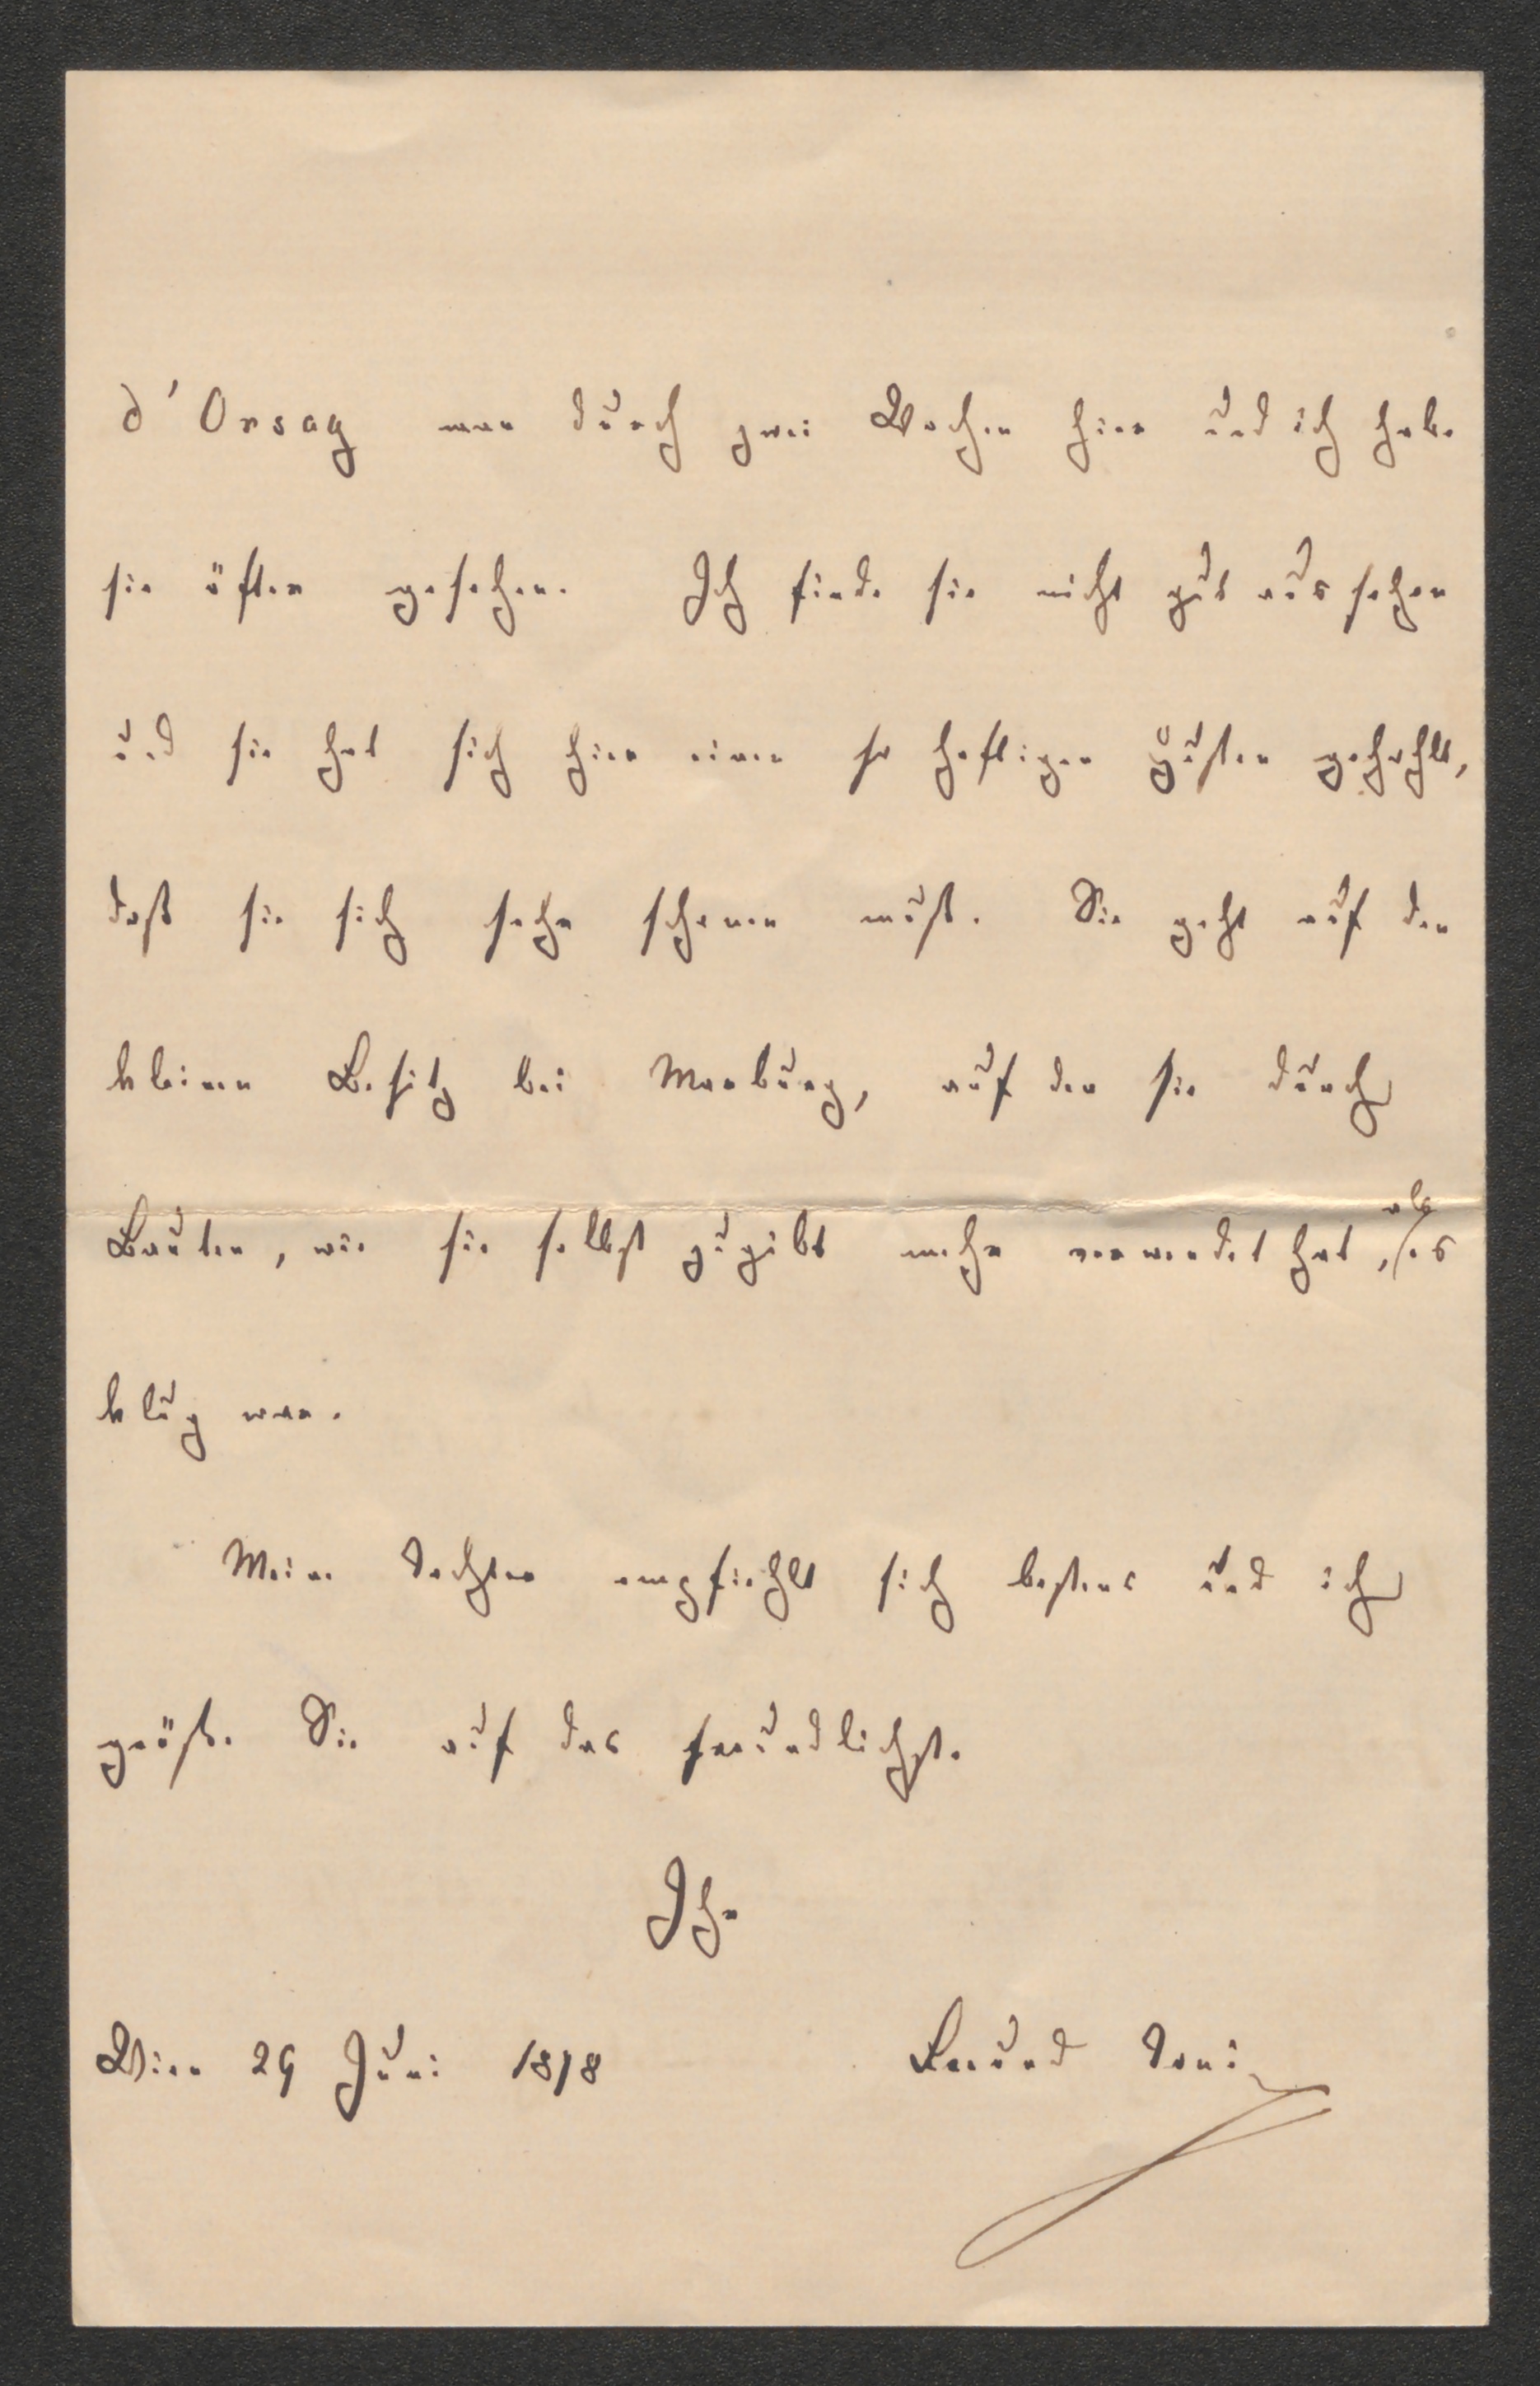 d'Orsay war durch zwei Wochen hier und ich habe
sie öfter gesehen. Ich finde sie nicht gut aussehen
und sie hat sich hier einen so heftigen Husten geholt,
daß sie sich sehr schonen muß. Sie geht auf den
kleinen Besitz bei Marburg, auf den sie durch
Bauten, wie sie selbst zugibt mehr verwendet hat, als es
klug war.
Meine Tochter empfiehlt sich bestens und ich
grüße Sie auf das freundlichste.
Ihr
Wien 29 Juni 1878